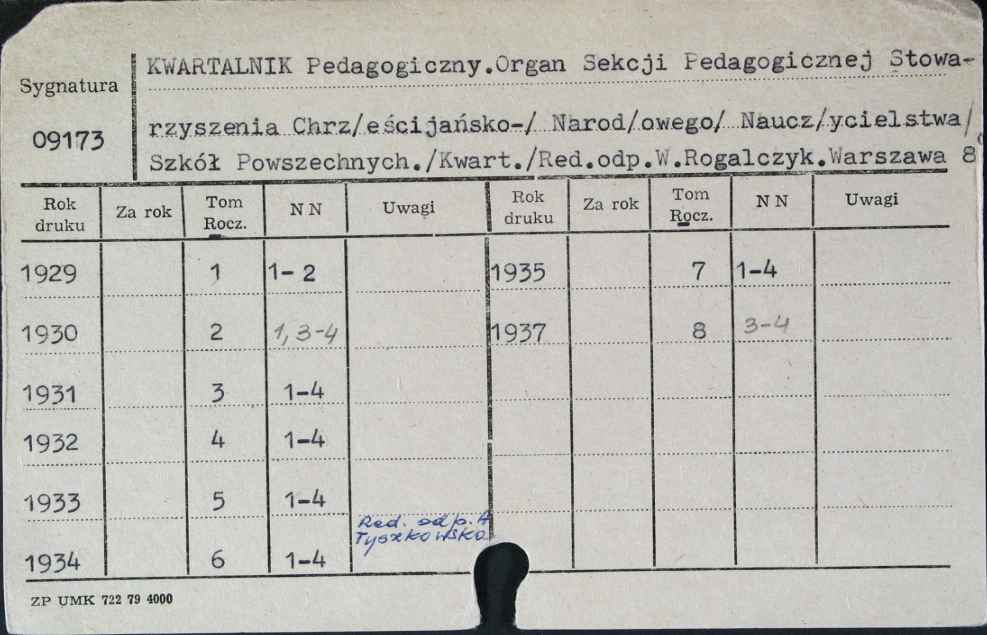 KWARTALNIK Pedagogiczny.Organ Sekcji Pedagogicznej Stowa-
Sygnatura
09173
rzyszenia Chrz/eścijańsko-/ Narod/owego/ Naucz/ycielstwa/
Szkół Powszechnych./Kwart./Red.odp.W.Rogalczyk.Warszawa 8°
Rok druku Za rok Tom Rocz. N N Uwagi Rok druku Za rok Tom Rocz. N N Uwagi
1929 1 1-2 1935 7 1-4
1930 2 1,3-4 1937 8 3-4
1931 3 1-4
1932 4 1-4
1933 5 1-4
Red. odp. A
Tyszkowska
1934 6 1-4
ZP UMK 722 79 4000